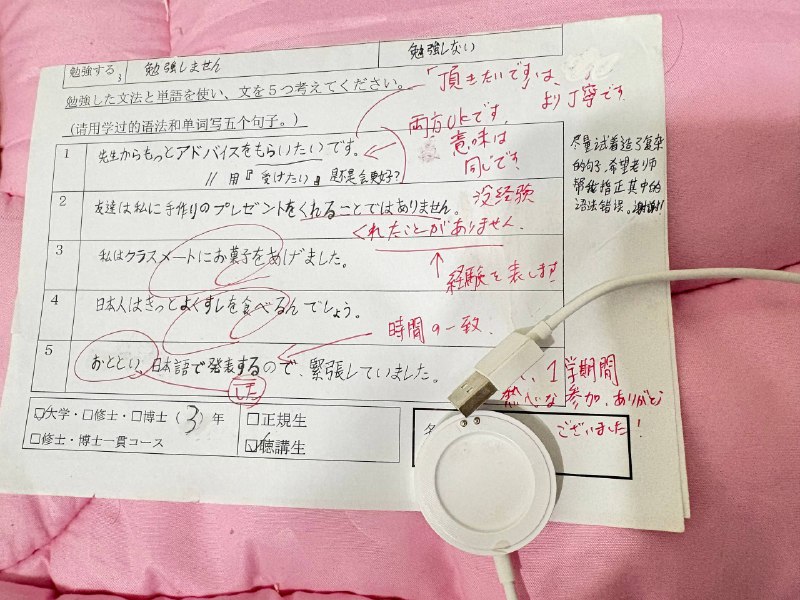 勉強する 3 勉強しません 勉強しない
勉強した文法と単語を使い、文を5つ考えてください。
(请用学过的语法和单词写五个句子。)
「頂きたいです」は
より丁寧です
1 先生からもっとアドバイスをもらいたいです。
// 用『受けたい』是不是会更好?
両方OKです。
意味は
同じです
2 友達は私に手作りのプレゼントをくれることではありません。
没経験
くれたことがありません.
経験を表します
3 私はクラスメートにお菓子をあげました。
4 日本人はきっとよくすしを食べるんでしょう。
時間の一致.
5 おととい,日本語で発表するので、緊張していました。
した
尽量试着造了复杂
的句子,希望老师
帮我指正其中的
语法错误。谢谢!!
1学期間
熱心な参加、ありがとう
ございました!
□大学・□修士・□博士(3)年
□修士・博士一貫コース
□正規生
☑聴講生